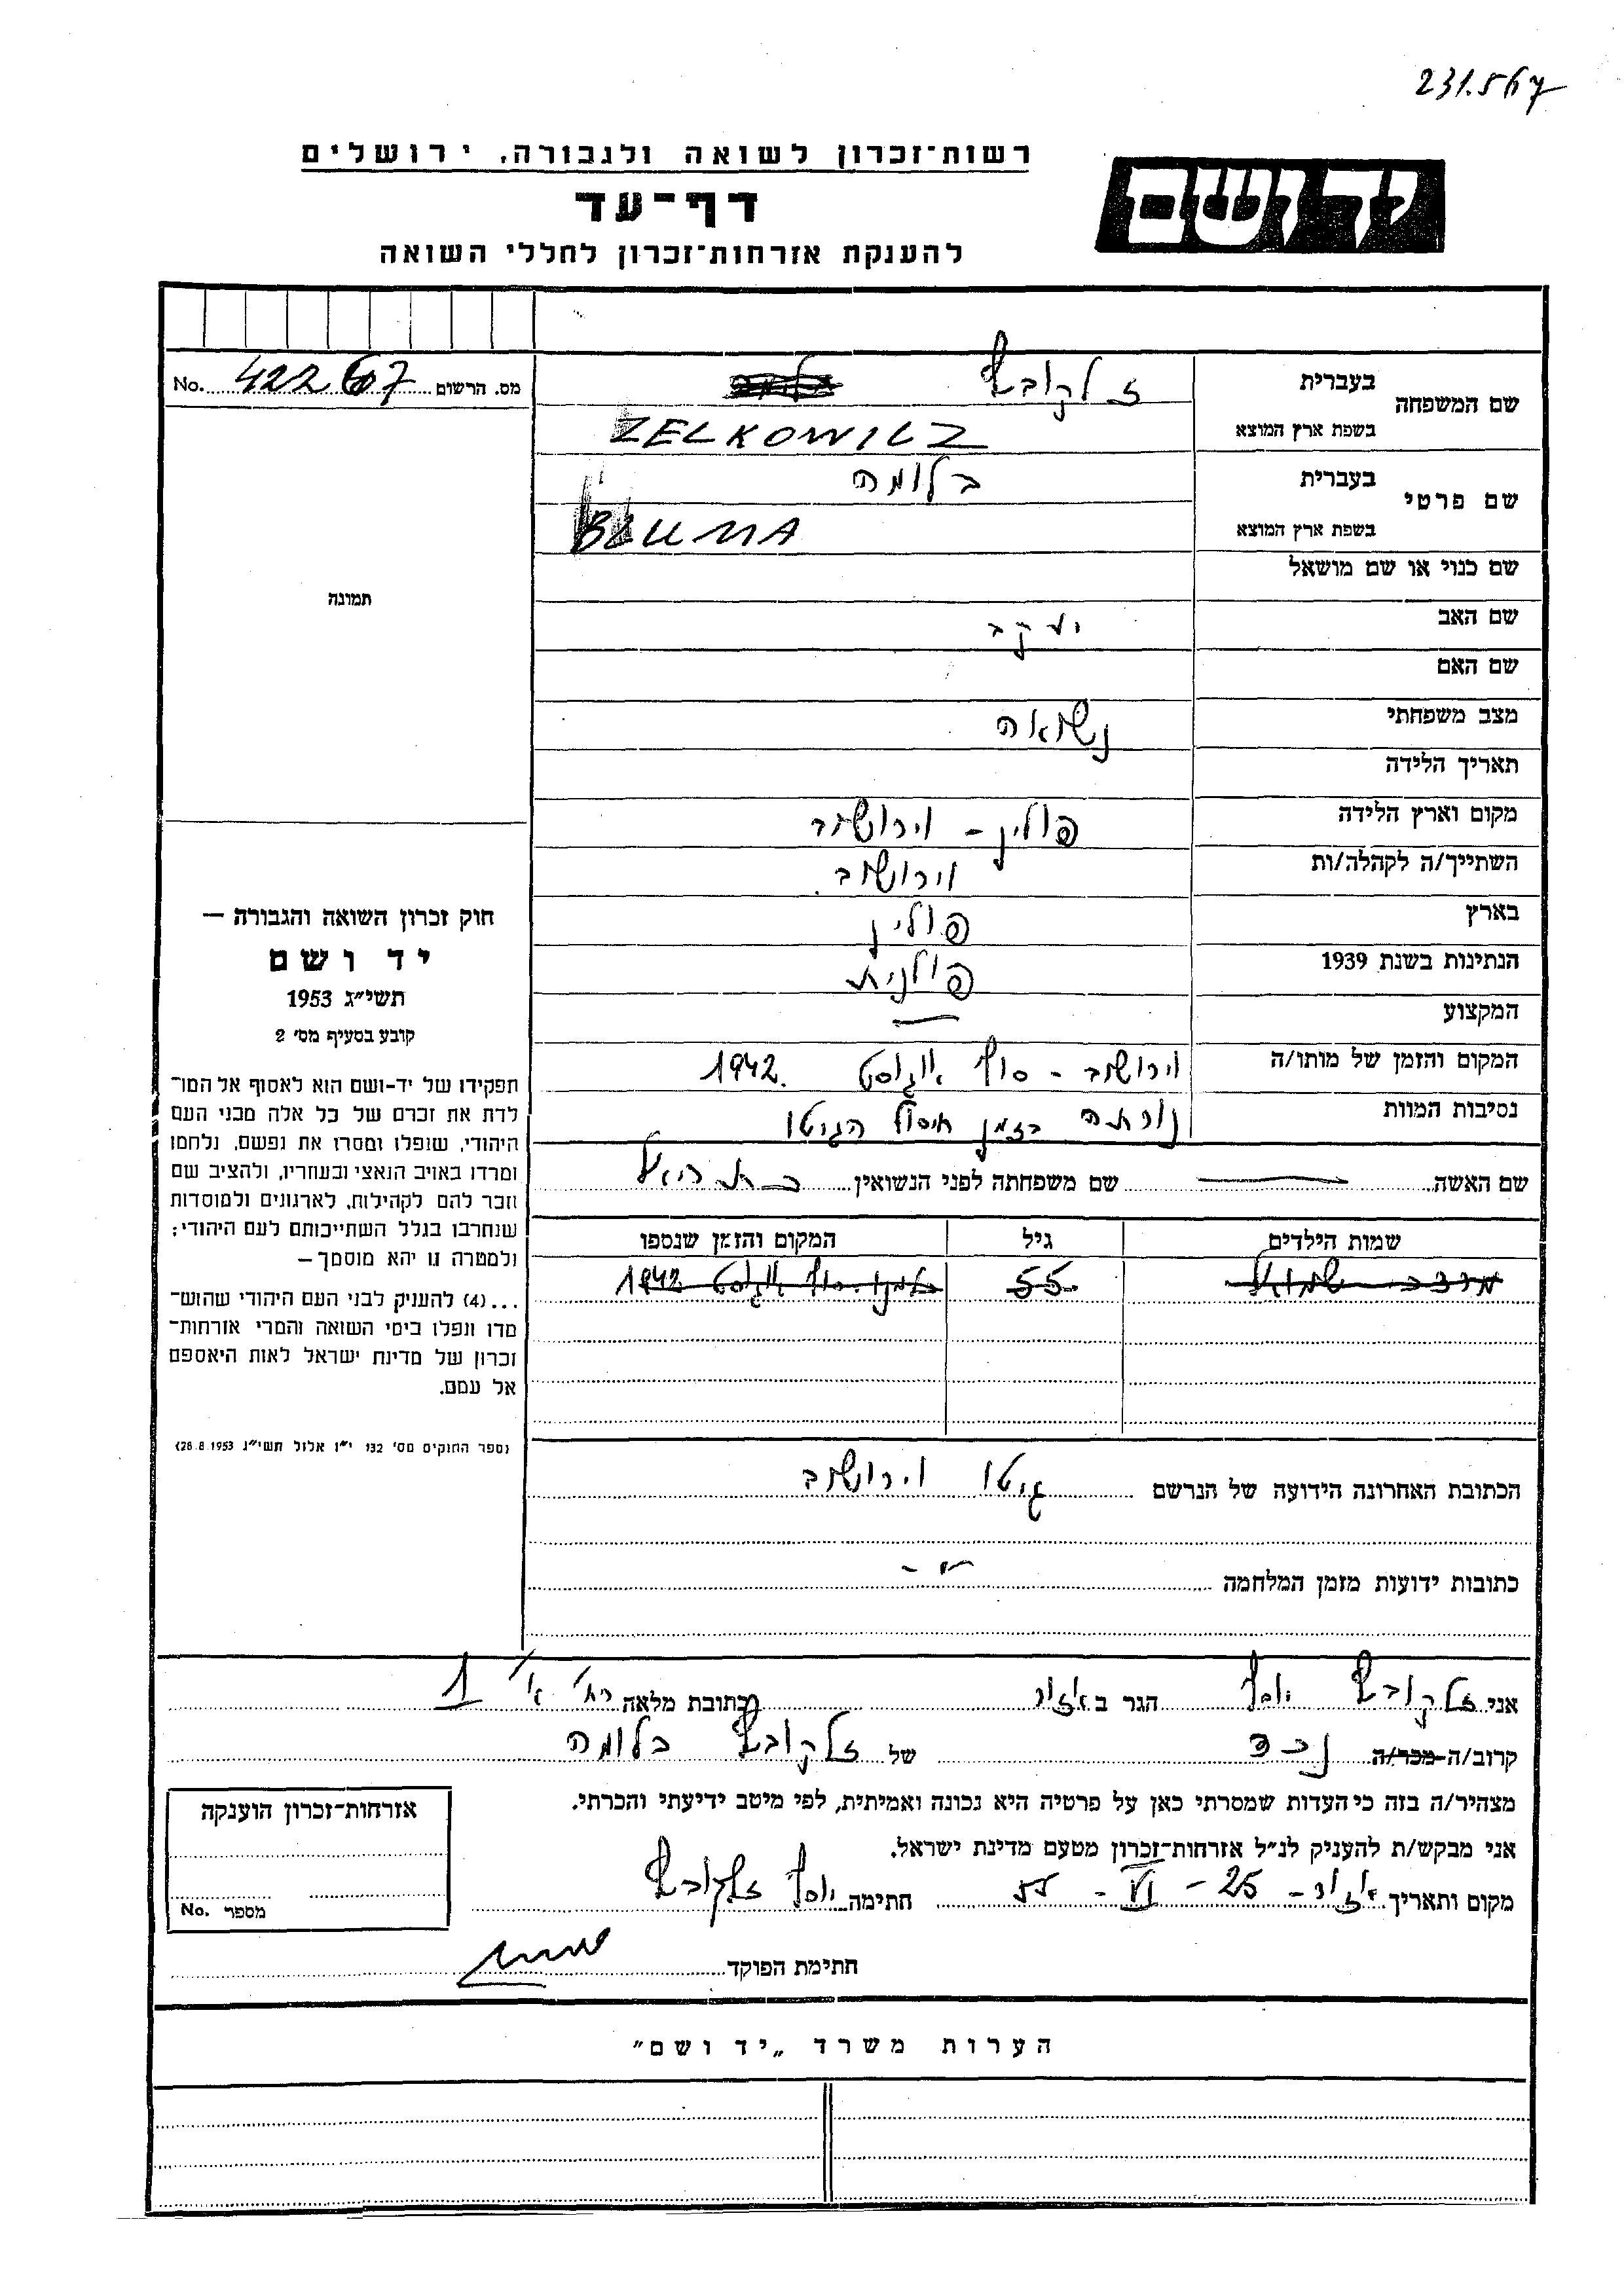 231.567
רשות-זכרון לשואה ולגבורה, ירושלים
יד ושם
דף-עד
להענקת אזרחות-זכרון לחללי השואה
שם המשפחה בעברית זלקוביץ
בשפת ארץ המוצא ZELKOWICZ
שם פרטי בעברית בלומה
בשפת ארץ המוצא BLUMA
שם כנוי או שם מושאל
שם האב יעקב
שם האם
מצב משפחתי נשואה
תאריך הלידה
מקום וארץ הלידה פולין - וירושוב
השתייך/ה לקהלה/ות וירושוב
בארץ פולין
הנתינות בשנת 1939 פולנית
המקצוע —
המקום והזמן של מותו/ה וירושוב - סוף אוגוסט 1942.
נסיבות המוות נורתה בזמן חיסול הגיטו
שם האשה — שם משפחתה לפני הנשואין
שמות הילדים גיל המקום והזמן שנספו
שמואל 55 סוף אוגוסט 1942
הכתובת האחרונה הידועה של הנרשם גיטו וירושוב
כתובות ידועות מזמן המלחמה
מס. הרשום No. 422607
תמונה
חוק זכרון השואה והגבורה —
יד ושם
תשי״ג 1953
קובע בסעיף מס׳ 2
תפקידו של יד-ושם הוא לאסוף אל המו־
לדת את זכרם של כל אלה מבני העם
היהודי, שנפלו ומסרו את נפשם, נלחמו
ומרדו באויב הנאצי ובעוזריו, ולהציב שם
וזכר להם לקהילות, לארגונים ולמוסדות
שנחרבו בגלל השתייכותם לעם היהודי;
ולמטרה זו יהא מוסמך —
...(4) להעניק לבני העם היהודי שהוש־
מדו ונפלו בימי השואה והמרי אזרחות-
זכרון של מדינת ישראל לאות היאספם
אל עמם.
(ספר החוקים מס׳ 132 י״ז אלול תשי״ג 28.8.1953)
אני זלקוביץ יוסף הגר ב אזור כתובת מלאה רח׳ א׳ 1
קרוב/ה-מכר/ה נכד של זלקוביץ בלומה
מצהיר/ה בזה כי העדות שמסרתי כאן על פרטיה היא נכונה ואמיתית, לפי מיטב ידיעתי והכרתי.
אני מבקש/ת להעניק לנ״ל אזרחות-זכרון מטעם מדינת ישראל.
מקום ותאריך אזור - 25 - VI - 55 חתימה יוסף זלקוביץ
חתימת הפוקד
אזרחות-זכרון הוענקה
מספר No.
הערות משרד „יד ושם״